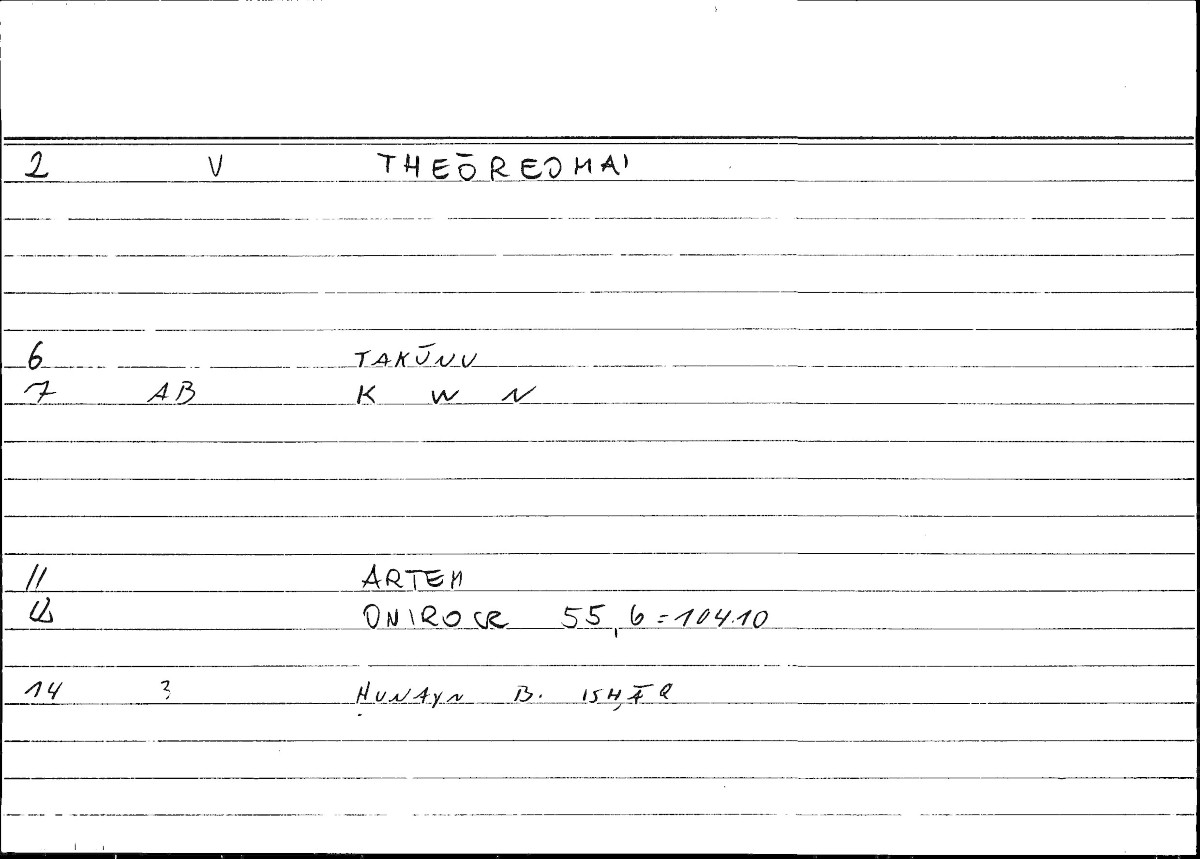 2 V THEŌREOMAI
6 TAKŪNU
7 AB K W N
11 ARTEM
12 ONIROCR 55,6=104.10
14 3 ḤUNAYN B. ISḤĀQ